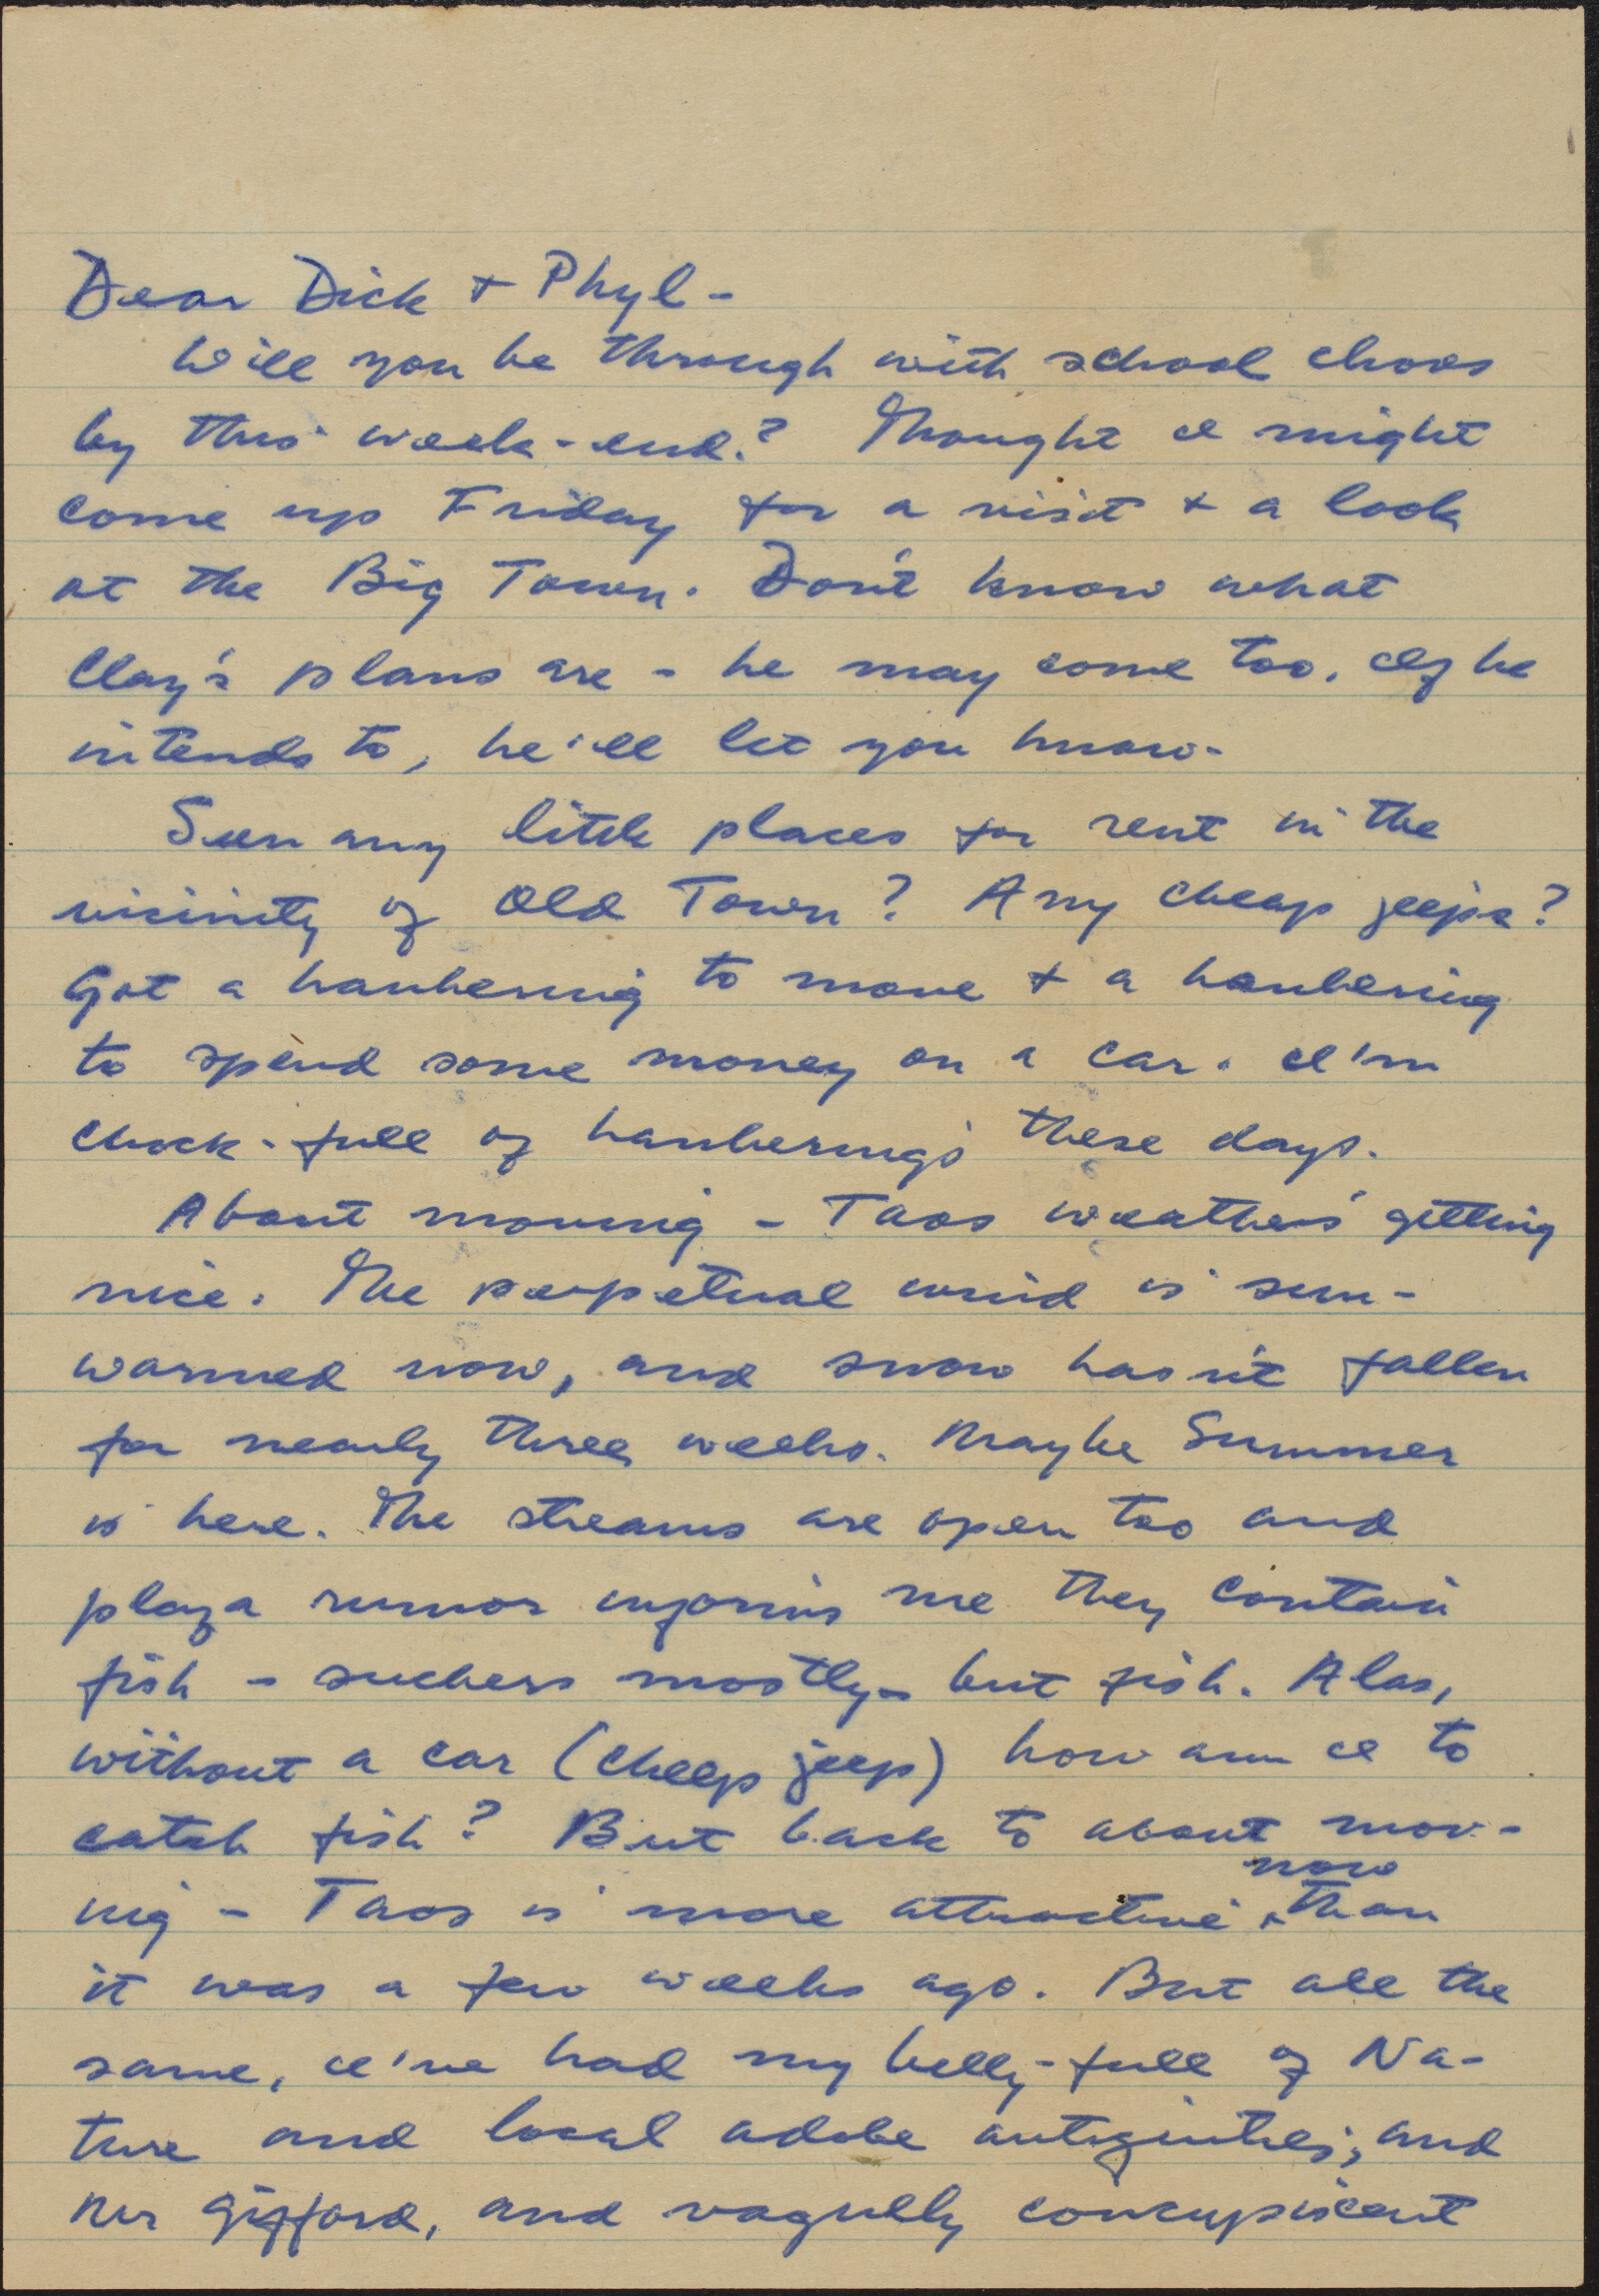 Dear Dick + Phyl -
Will you be through with school chores
by this week-end? Thought I might
come up Friday for a visit + a look
at the Big Town. Don't know what
Clay's plans are - he may come too. If he
intends to, he'll let you know.
Seen any little places for rent in the
vicinity of Old Town? Any cheap jeeps?
Got a hankering to move + a hankering
to spend some money on a car. I'm
chock-full of hankerings these days.
About moving - Taos weather's getting
nice. The perpetual wind is sun-
warmed now, and snow hasn't fallen
for nearly three weeks. Maybe Summer
is here. The streams are open too and
plaza rumor informs me they contain
fish - suckers mostly - but fish. Alas,
without a car (cheep jeep) how am I to
catch fish? But back to about mov-
ing - Taos is more attractive now than
it was a few weeks ago. But all the
same, I've had my belly-full of Na-
ture and local adobe antiquities, and
Mr Gifford, and vaguely concupiscent